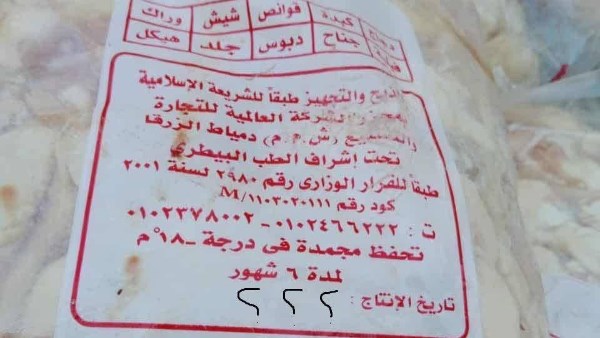 كبدة قوانص شيش وراك
جناح دبوس جلد هيكل
الذبح والتجهيز طبقاً للشريعة الإسلامية
بمجزر الشركة العالمية للتجارة
والتصنيع (ش.م.م) دمياط الزرقا
تحت إشراف الطب البيطري
طبقاً للقرار الوزارى رقم ٢٩٨٠ لسنة ٢٠٠١
كود رقم M/١١٠٣٠٢٠١١١
ت : ٠١٠٢٤٦٦٢٢٢ - ٠١٠٢٣٧٨٠٠٢
تحفظ مجمدة فى درجة -١٨°م
لمدة ٦ شهور
تاريخ الإنتاج : ؟ ؟ ؟